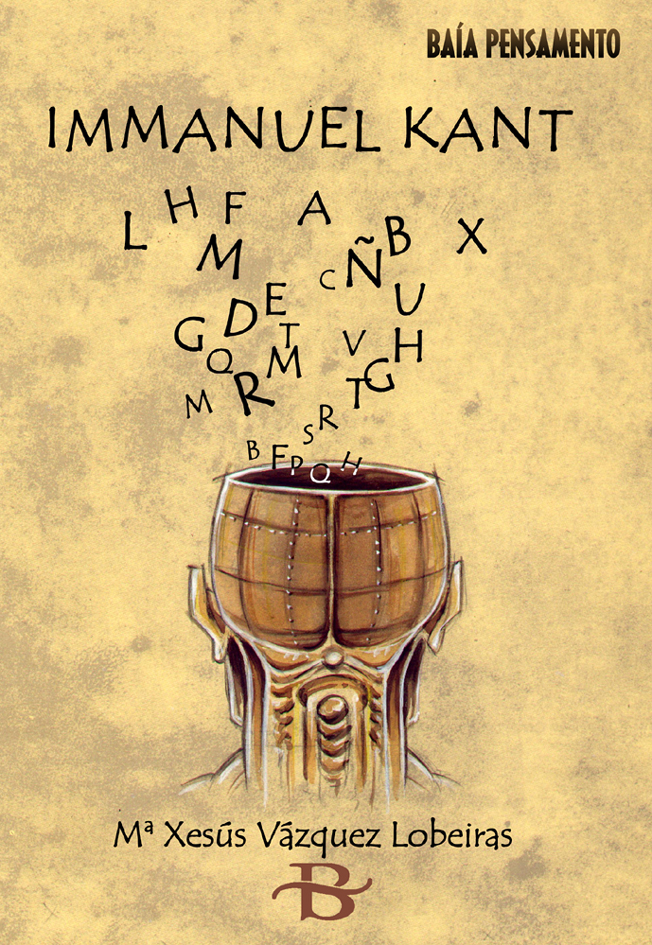 BAÍA PENSAMENTO
IMMANUEL KANT
L H F A B X
M C Ñ
G D E U
Q T M V H
M R T G
S R
B F P Q H
Mª Xesús Vázquez Lobeiras
B